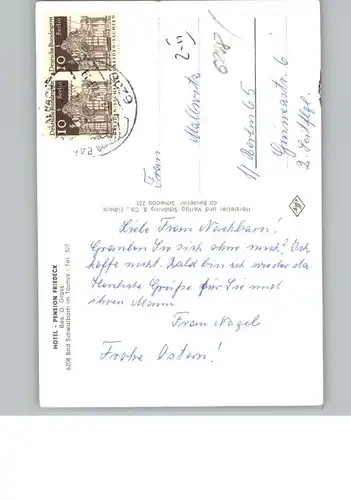 Deutsche Bundespost
Berlin
10
Deutsche Bundespost
Berlin
10
2-11
6208/1
Frau
Mallwitz
1/ Berlin 65
6
2. Seitflgl.
Hersteller und Verlag Schöning & Co., Lübeck
Liebe Frau Nachbarin!
Graulen Sie sich ohne mich? Ich
hoffe nicht. Bald bin ich wieder da
Herzliche Grüße für Sie und
ihren Mann
Frau Nagel
Frohe Ostern!
HOTEL - PENSION FRIEDECK
6208 Bad Schwalbach im Taunus - Tel. 377